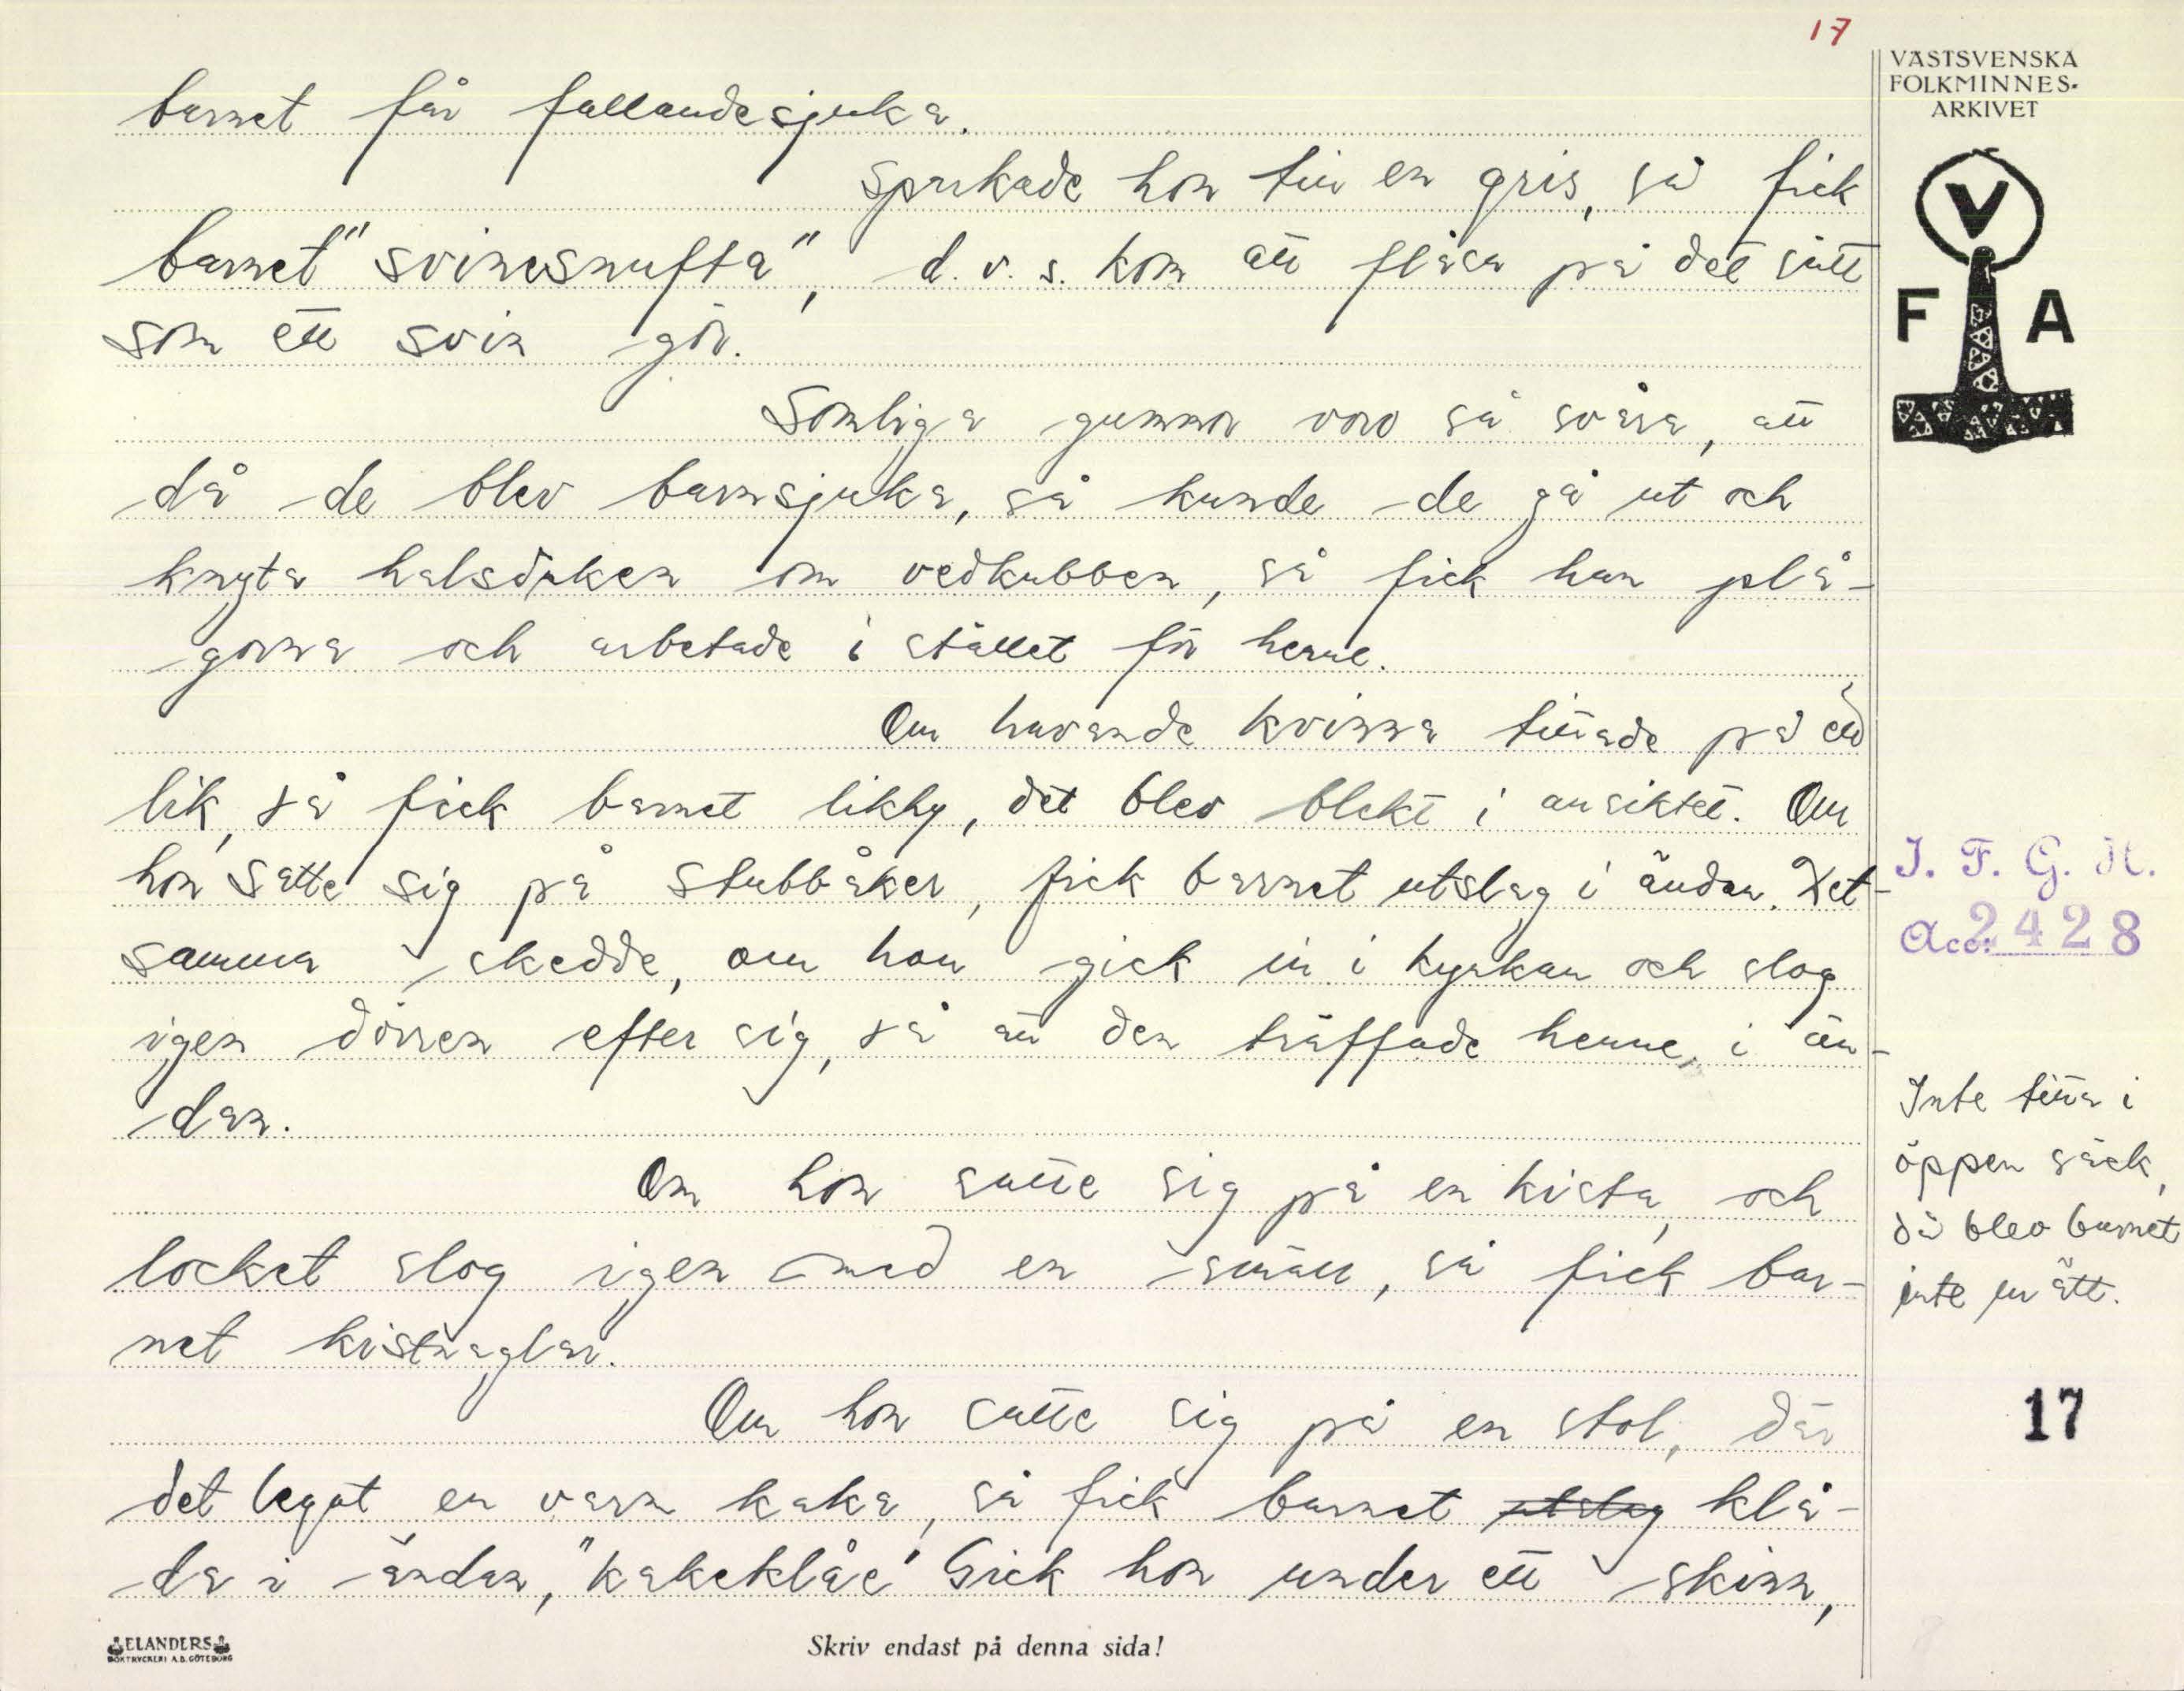 17
VÄSTSVENSKA
FOLKMINNES-
ARKIVET
V
F A
barnet får fallandesjuka.
Sparkade hon till en gris, så fick
barnet "svinesnufta", d.v.s. kom att flåsa på det sätt
som ett svin gör.
Somliga gummor voro så svåra, att
då de blev barnsjuka, så kunde de gå ut och
knyta halsduken om vedkubben, så fick han plå-
gorna och arbetade i stället för henne.
Om havande kvinna tittade på ett
lik, så fick barnet likhy, det blev blekt i ansiktet. Om
hon satte sig på stubbåker, fick barnet utslag i ändan. Det-
samma skedde, om hon gick in i kyrkan och slog
igen dörren efter sig, så att den träffade henne i än-
dan.
Om hon satte sig på en kista, och
locket slog igen med en smäll, så fick bar-
net kistnaglar.
Om hon satte sig på en stol, där
det legat en varm kaka, så fick barnet utslag klå-
da i ändan, "kakeklåe" Gick hon under ett skinn,
I. F. G. H.
Acc. 2428
Inte titta i
öppen säck,
då blev barnet
inte mätt.
17
ELANDERS
BOKTRYCKERI A.B. GÖTEBORG
Skriv endast på denna sida!